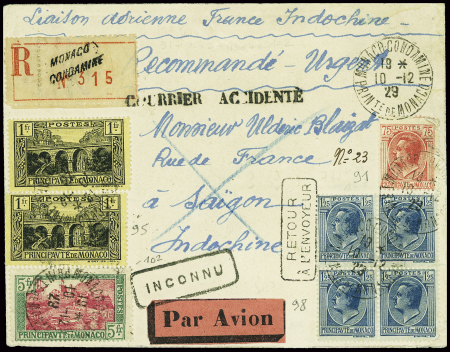 Liaison aérienne France Indochine
R
MONACO
CONDAMINE
N° 315
Recommandé - Urgent
MONACO-CONDAMINE
19 *
10 -12
29
PRINCIPTE DE MONACO
COURRIER ACCIDENTÉ
Monsieur Blaizat
Rue de France N°-23
à Saïgon
Indochine
1F POSTES 1F
PRINCIPAUTÉ DE MONACO
1F POSTES 1F
PRINCIPAUTÉ DE MONACO
5F POSTES
PRINCIPAUTÉ DE MONACO 5F
75 POSTES 75
91
95
102
98
RETOUR
À L'ENVOYEUR
INCONNU
Par Avion
PRINCIPAUTÉ DE MONACO
PRINCIPAUTÉ DE MONACO